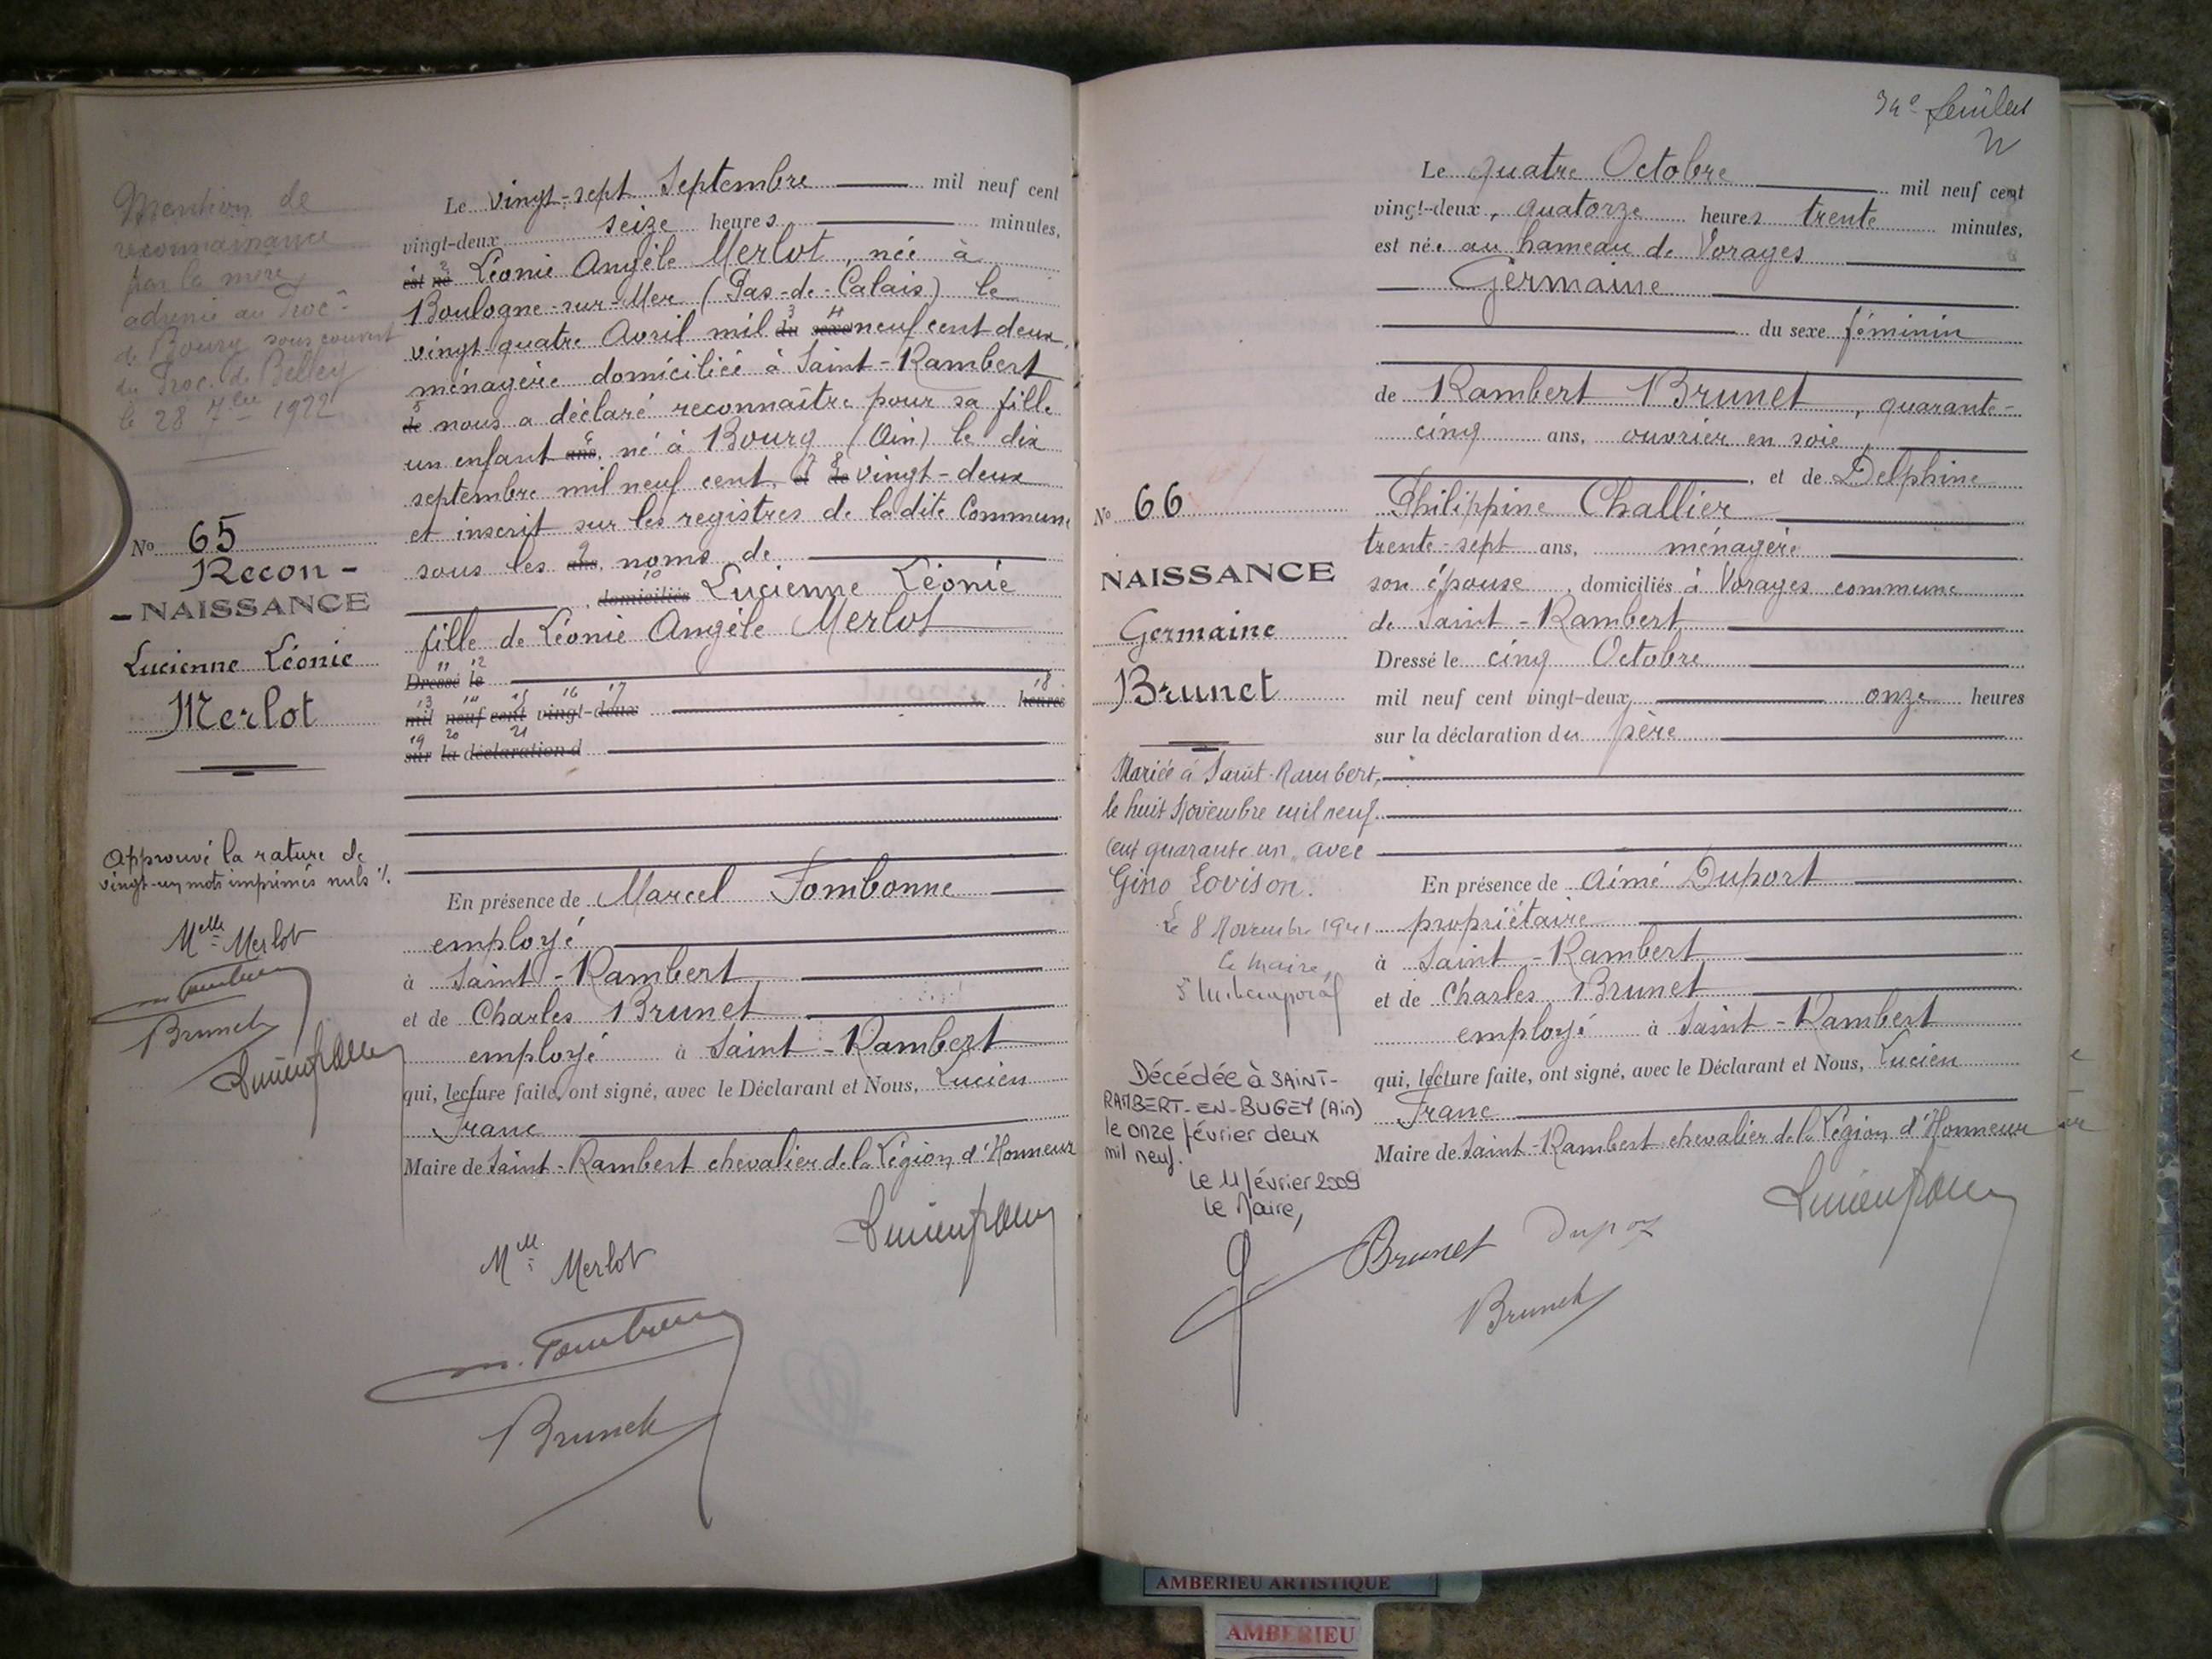 Mention de
reconnaissance
par la mère
adressée au Proc.
de Bourg sous couvert
du Proc. de Belley
le 28 7bre 1922
No 65
Recon-
- NAISSANCE
Lucienne Léonie
Merlot
Approuvé la rature de
vingt-un mots imprimés nuls ./.
Melle Merlot
Brunet
Le vingt-sept Septembre mil neuf cent
vingt-deux seize heures minutes,
est né 2 Léonie Angèle Merlot, née à
Boulogne-sur-Mer (Pas-de-Calais) le
vingt-quatre Avril mil du 3 sexe 4 neuf cent deux,
ménagère domiciliée à Saint-Rambert
5 de nous a déclaré reconnaître pour sa fille
un enfant ans, 6 né à Bourg (Ain) le dix
septembre mil neuf cent, et 7 de 8 vingt-deux
et inscrit sur les registres de ladite Commune
sous les ans, 9 noms de
, domiciliés 10 Lucienne Léonie
fille de Léonie Angèle Merlot
11 12
Dressé le
13 14 15 16 17 18
mil neuf cent vingt-deux heures
19 20 21
sur la déclaration d
En présence de Marcel Fombonne
employé
à Saint-Rambert
et de Charles Brunet
employé à Saint-Rambert
qui, lecture faite, ont signé, avec le Déclarant et Nous, Lucien
Franc
Maire de Saint-Rambert chevalier de la Légion d'Honneur
Mlle Merlot
Brunet
34e feuillet
No 66
NAISSANCE
Germaine
Brunet
Mariée à Saint-Rambert,
le huit Novembre mil neuf
cent quarante un, avec
Gino Lovison.
Le 8 Novembre 1941
Le Maire,
Décédée à SAINT-
RAMBERT-EN-BUGEY (Ain)
le onze février deux
mil neuf.
Le 11 février 2009
Le Maire,
Le quatre Octobre mil neuf cent
vingt-deux, quatorze heures trente minutes,
est née au hameau de Vorages
Germaine
du sexe féminin
de Rambert Brunet, quarante-
cinq ans, ouvrier en soie,
, et de Delphine
Philippine Challier
trente-sept ans, ménagère
son épouse, domiciliés à Vorages commune
de Saint-Rambert
Dressé le cinq Octobre
mil neuf cent vingt-deux, onze heures
sur la déclaration du père
En présence de Aimé Duport
propriétaire
à Saint-Rambert
et de Charles Brunet
employé à Saint-Rambert
qui, lecture faite, ont signé, avec le Déclarant et Nous, Lucien
Franc
Maire de Saint-Rambert chevalier de la Légion d'Honneur
Brunet
Brunet
AMBERIEU ARTISTIQUE
AMBERIEU